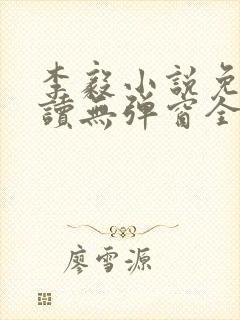 李毅小說免
讀無彈窗全
廖雪源